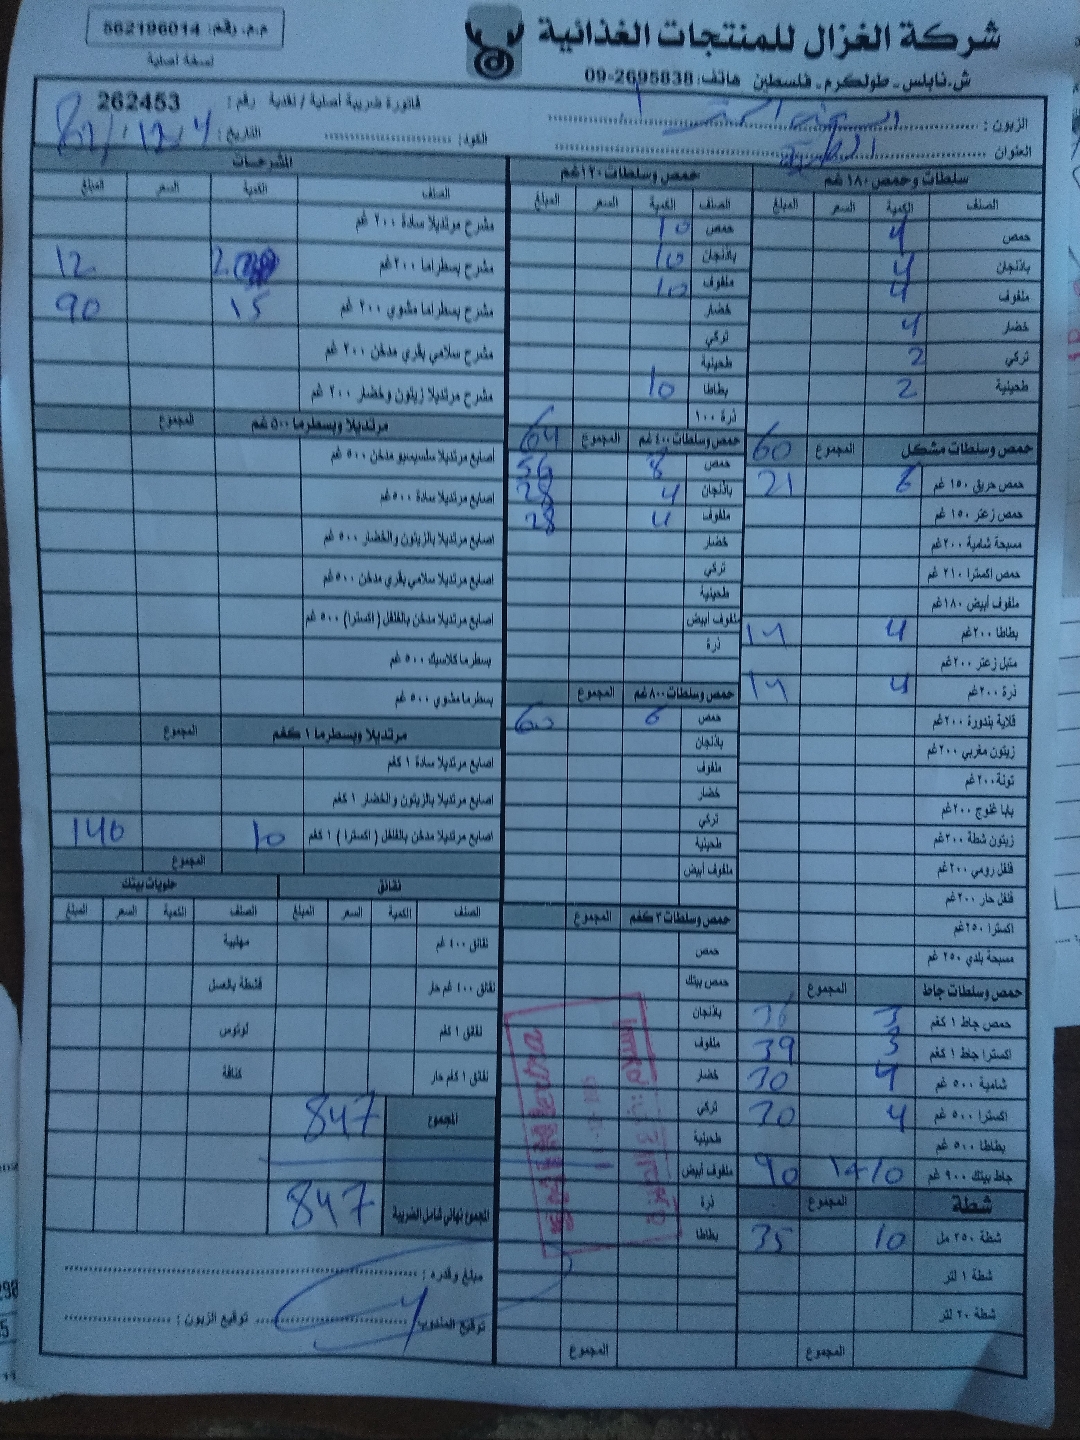 شركة الغزال للمنتجات الغذائية
ش.نابلس - طولكرم - فلسطين هاتف: 2695838-09
م.م. رقم: 562196014
نسخة أصلية
فاتورة ضريبية أصلية / نقدية رقم: 262453
الزبون:
العنوان
الكود: التاريخ:
سلطات وحمص ١٨٠غم
الصنف الكمية السعر المبلغ
حمص 4
باذنجان 4
ملفوف 4
خضار 4
تركي 2
طحينية 2
حمص وسلطات مشكل المجموع 60
حمص حريق ١٥٠ غم 6 21
حمص زعتر ١٥٠ غم
مسبحة شامية ٢٠٠غم
حمص اكسترا ٢١٠ غم
ملفوف أبيض ١٨٠غم
بطاطا ٢٠٠غم 4 14
متبل زعتر ٢٠٠غم
ذرة ٢٠٠غم 4 14
قلاية بندورة ٢٠٠غم
زيتون مغربي ٢٠٠غم
تونة ٢٠٠غم
بابا غنوج ٢٠٠غم
زيتون شطة ٢٠٠غم
فلفل رومي ٢٠٠غم
فلفل حار ٢٠٠غم
اكسترا ٢٥٠غم
مسبحة بلدي ٢٥٠ غم
حمص وسلطات جاط المجموع
حمص جاط ١ كغم 3 36
اكسترا جاط ١ كغم 3 39
شامية ٥٠٠ غم 4 30
اكسترا ٥٠٠ غم 4 30
بطاطا ٥٠٠ غم
جاط بيتك ٩٠٠ غم 90
شطة المجموع
شطة ٢٥٠ مل 10 35
شطة ١ لتر
شطة ٢٠ لتر
المجموع
حمص وسلطات ١٢٠غم
الصنف الكمية السعر المبلغ
حمص 10
باذنجان 10
ملفوف 10
خضار
تركي
طحينية
بطاطا 10
ذرة ١٠٠
حمص وسلطات ٤٠٠ غم المجموع 64
حمص 8 56
باذنجان 4 28
ملفوف 4 28
خضار
تركي
طحينية
ملفوف أبيض
ذرة
حمص وسلطات ٨٠٠ غم المجموع
حمص 6 60
باذنجان
ملفوف
خضار
تركي
طحينية
ملفوف أبيض
حمص وسلطات ٣ كغم المجموع
حمص
حمص بيتك
باذنجان
ملفوف
خضار
تركي
طحينية
ملفوف أبيض
ذرة
بطاطا
المجموع
المشرحات
الصنف الكمية السعر المبلغ
مشرح مرتديلا سادة ٢٠٠ غم
مشرح بسطراما ٢٠٠غم 2 12
مشرح بسطراما مشوي ٢٠٠ غم 15 90
مشرح سلامي بقري مدخن ٢٠٠ غم
مشرح مرتديلا زيتون وخضار ٢٠٠ غم
مرتديلا وبسطرما ٥٠٠ غم المجموع
اصابع مرتديلا سلسيسيو مدخن ٥٠٠ غم
اصابع مرتديلا سادة ٥٠٠ غم
اصابع مرتديلا بالزيتون والخضار ٥٠٠ غم
اصابع مرتديلا سلامي بقري مدخن ٥٠٠ غم
اصابع مرتديلا مدخن بالفلفل (اكسترا) ٥٠٠ غم
بسطرما كلاسيك ٥٠٠ غم
بسطرما مشوي ٥٠٠ غم
مرتديلا وبسطرما ١ كغم المجموع
اصابع مرتديلا سادة ١ كغم
اصابع مرتديلا بالزيتون والخضار ١ كغم
اصابع مرتديلا مدخن بالفلفل (اكسترا) ١ كغم 10 140
المجموع
نقانق حلويات بيتك
الصنف الكمية السعر المبلغ الصنف الكمية السعر المبلغ
نقانق ٤٠٠ غم مهلبية
نقانق ٤٠٠ غم حار قشطة بالعسل
نقانق ١ كغم لوتوس
نقانق ١ كغم حار كنافة
المجموع 847
المجموع نهائي شامل الضريبة 847
مبلغ وقدره:
توقيع المندوب توقيع الزبون: